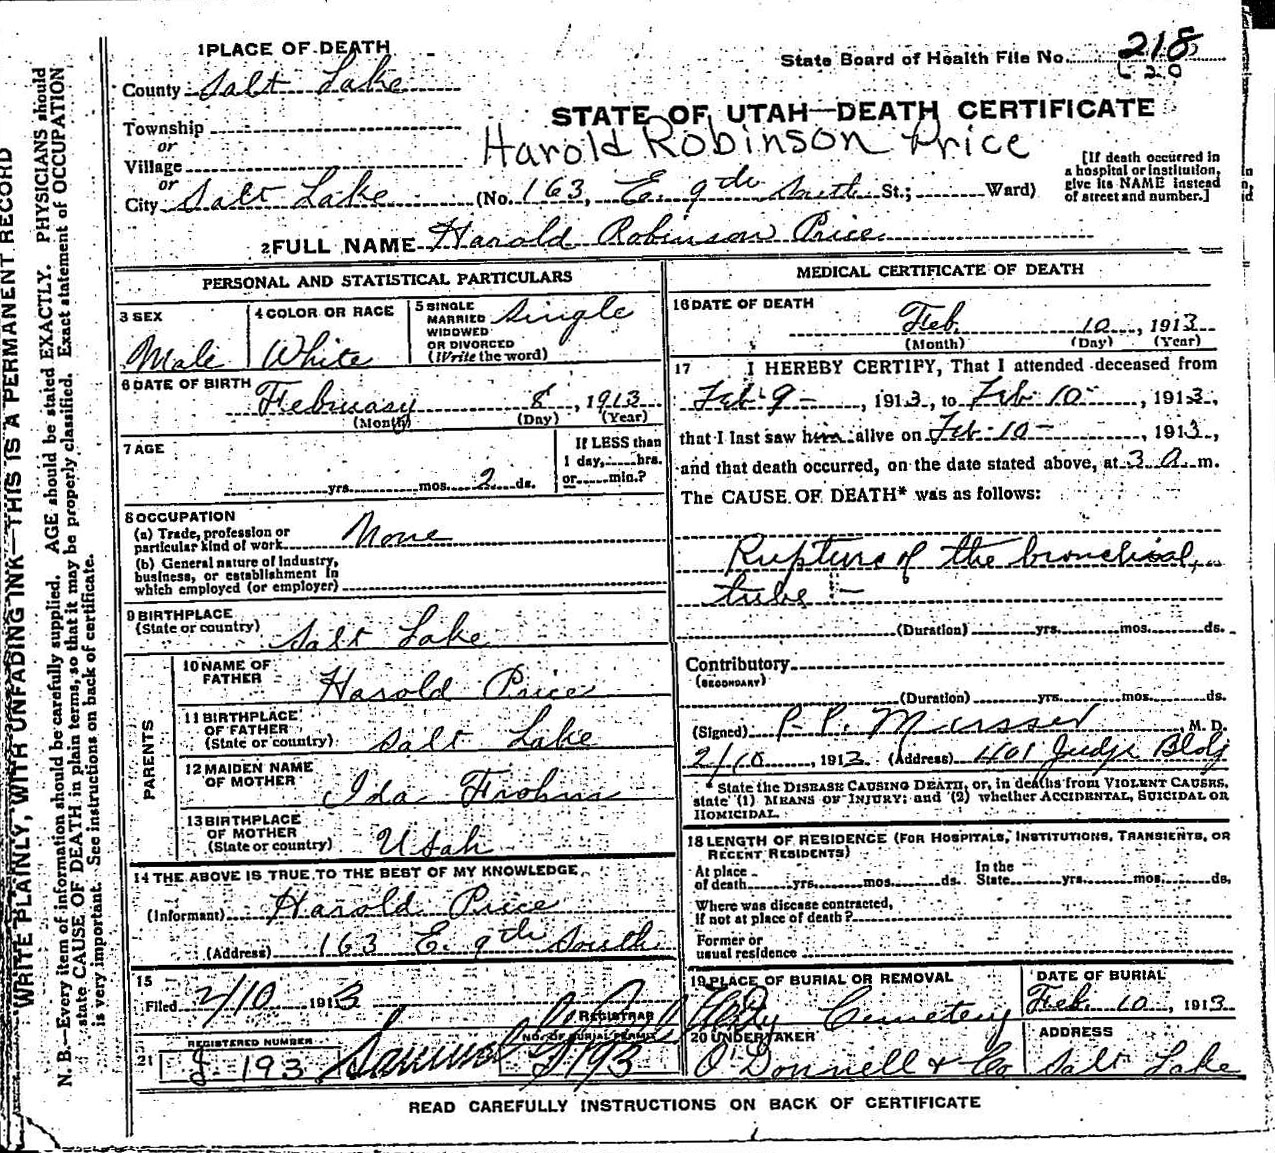 1 PLACE OF DEATH
State Board of Health File No. 218
County Salt Lake
STATE OF UTAH—DEATH CERTIFICATE
Township
or
Harold Robinson Price
Village
or
City Salt Lake (No. 163, E. 9th South St.; Ward)
[If death occurred in
a hospital or institution,
give its NAME instead
of street and number.]
2 FULL NAME Harold Robinson Price
PERSONAL AND STATISTICAL PARTICULARS
3 SEX
Male
4 COLOR OR RACE
White
5 SINGLE
MARRIED
WIDOWED
OR DIVORCED
(Write the word)
Single
6 DATE OF BIRTH
February 8, 1913
(Month) (Day) (Year)
7 AGE
yrs. mos. 2 ds.
If LESS than
1 day, hrs.
or min.?
8 OCCUPATION
(a) Trade, profession or
particular kind of work None
(b) General nature of Industry,
business, or establishment in
which employed (or employer)
9 BIRTHPLACE
(State or country) Salt Lake
PARENTS
10 NAME OF
FATHER Harold Price
11 BIRTHPLACE
OF FATHER
(State or country) Salt Lake
12 MAIDEN NAME
OF MOTHER Ida
13 BIRTHPLACE
OF MOTHER
(State or country) Utah
14 THE ABOVE IS TRUE TO THE BEST OF MY KNOWLEDGE
(Informant) Harold Price
(Address) 163 E. 9th South
15
Filed 2/10 1913
REGISTRAR
21 REGISTERED NUMBER
J 193
NO. OF BURIAL PERMIT
J193
MEDICAL CERTIFICATE OF DEATH
16 DATE OF DEATH
Feb. 10, 1913
(Month) (Day) (Year)
17 I HEREBY CERTIFY, That I attended deceased from
Feb 9 -, 1913, to Feb 10 -, 1913,
that I last saw him alive on Feb 10 -, 1913,
and that death occurred, on the date stated above, at 3 a. m.
The CAUSE OF DEATH* was as follows:
Rupture of the bronchial
tube -
(Duration) yrs. mos. ds.
Contributory
(SECONDARY)
(Duration) yrs. mos. ds.
(Signed) P. P. Musser M. D.
2/10, 1913 (Address) 401 Judge Bldg
* State the DISEASE CAUSING DEATH, or, in deaths from VIOLENT CAUSES,
state (1) MEANS OF INJURY; and (2) whether ACCIDENTAL, SUICIDAL OR
HOMICIDAL.
18 LENGTH OF RESIDENCE (FOR HOSPITALS, INSTITUTIONS, TRANSIENTS, OR
RECENT RESIDENTS)
At place
of death yrs. mos. ds.
In the
State yrs. mos. ds.
Where was disease contracted,
If not at place of death?
Former or
usual residence
19 PLACE OF BURIAL OR REMOVAL
City Cemetery
DATE OF BURIAL
Feb. 10, 1913
20 UNDERTAKER
O'Donnell & Co
ADDRESS
Salt Lake
READ CAREFULLY INSTRUCTIONS ON BACK OF CERTIFICATE
WRITE PLAINLY, WITH UNFADING INK—THIS IS A PERMANENT RECORD
N. B.—Every item of information should be carefully supplied. AGE should be stated EXACTLY. PHYSICIANS should
state CAUSE OF DEATH in plain terms, so that it may be properly classified. Exact statement of OCCUPATION
is very important. See instructions on back of certificate.